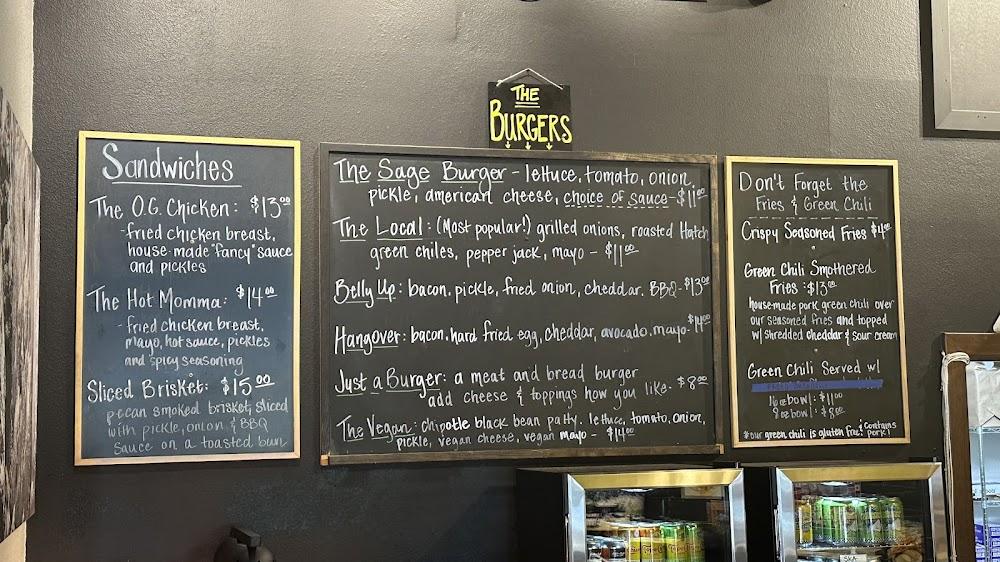 THE
BURGERS
Sandwiches
The O.G. Chicken: $13.00
-fried chicken breast,
house-made "fancy" sauce
and pickles
The Hot Momma: $14.00
-fried chicken breast,
mayo, hot sauce, pickles
and spicy seasoning
Sliced Brisket: $15.00
pecan smoked brisket, sliced
with pickle, onion, & BBQ
sauce on a toasted bun
The Sage Burger - lettuce, tomato, onion,
pickle, american cheese, choice of sauce - $11.00
The Local: (Most popular!) grilled onions, roasted Hatch
green chiles, pepper jack, mayo - $11.00
Belly Up: bacon, pickle, fried onion, cheddar, BBQ - $13.00
Hangover: bacon, hard fried egg, cheddar, avocado, mayo - $14.00
Just a Burger: a meat and bread burger
add cheese & toppings how you like - $8.00
The Vegan: chipotle black bean patty, lettuce, tomato, onion,
pickle, vegan cheese, vegan mayo - $14.00
Don't Forget the
Fries & Green Chili
Crispy Seasoned Fries $4.00
Green Chili Smothered
Fries: $13.00
house-made pork green chili over
our seasoned fries and topped
w/ shredded cheddar & sour cream
Green Chili Served w/
16 oz bowl: $11.00
8 oz bowl: $8.00
*our green chili is gluten free! & contains
pork!